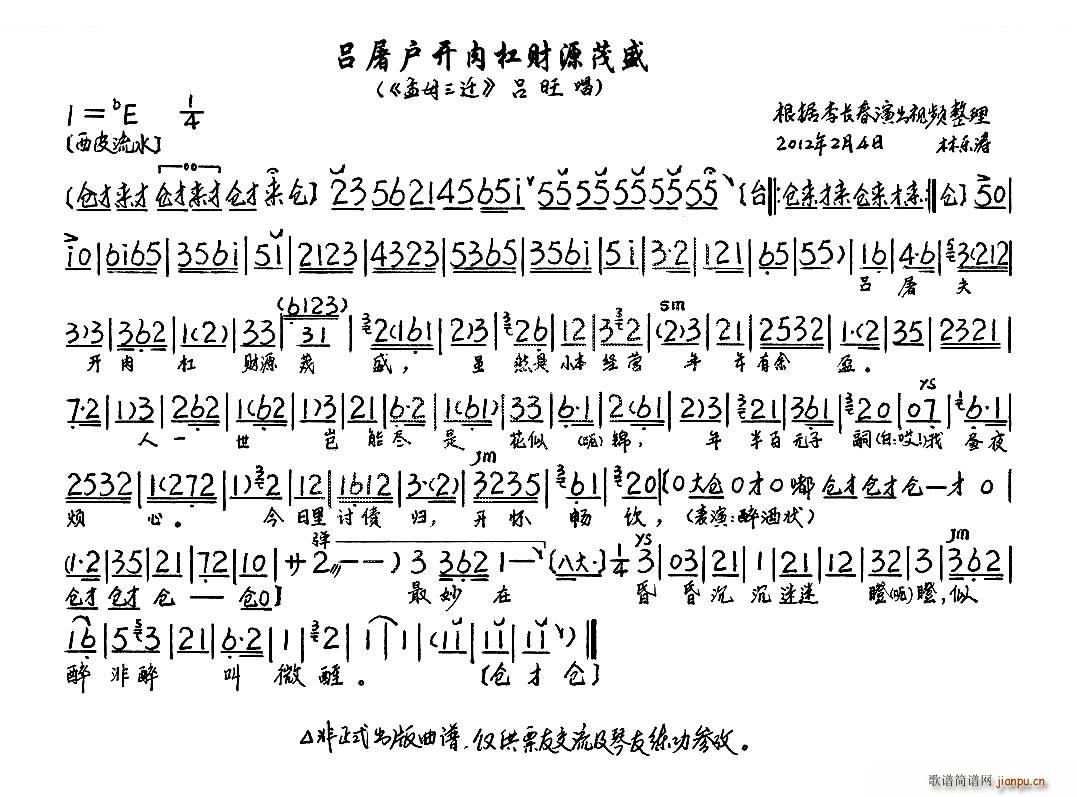 吕屠户开肉杠财源茂盛
(《孟母三迁》吕旺唱)
1=bE 1/4
根据李长春演出视频整理
[西皮流水]
2012年2月4日 林乐涛
(仓才来才 仓才来才 仓才 来 仓] 235621456 5i 55555555 [台 仓来才来仓来才来 仓] 50
i0 6i65 356i 5i 2123 4323 5365 356i 5i 3·2 121 6·5 55) 16 4·6 3(212
吕 屠 夫
(6123)
3)3 362 1(2) 33 31 2(161 2)3 326 12 32 (2)3 21 2532 1·(2 35 2321
sm
开 肉 杠 财源 茂 盛, 虽 然是 小本 经营 年 年 有余 盈。
7·2 1)3 262 1(62 1)3 21 6·2 1(61) 33 6·1 2(61 2)3 21 361 20 07 6·1
YS
人 一 世 岂 能 尽 是 花似 (呃) 锦, 年 半百 无子 嗣(白:哎!)我 昼夜
2532 1(272 1)2 12 1612 3·(2) 3235 61 20 [0大仓 0才0嘟 仓才仓才仓一才 0
jm
烦 心。 今 日里 讨债 归, 开怀 畅 饮, (表演:醉酒状)
(1·2 35 21 72 10 サ2 — —) 3 362 1— (八大·) 1/4 3 03 21 1 21 12 32 3 362
弹 YS jm
仓才 仓才 仓 — 仓0] 最 妙 在 昏 昏 沉 沉 迷迷 瞪(呃)瞪,似
16 53 21 6·2 1 2 1 1 (1i 1i 1i)
醉 非醉 叫 微醒。 [仓 才 仓]
△非正式出版曲谱,仅供票友交流及琴友练功参考。
歌谱简谱网 jianpu.cn